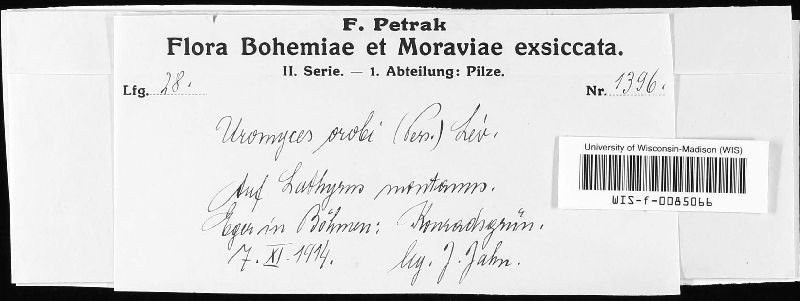 F. Petrak
Flora Bohemiae et Moraviae exsiccata.
II. Serie. — 1. Abteilung: Pilze.
Lfg. 28. Nr. 1396.
Uromyces orobi (Pers.) Lév.
Auf Lathyrus montanus.
Eger in Böhmen: Konradsgrün.
7. XI. 1914. lig. J. Jahn.
University of Wisconsin-Madison (WIS)
WIS-f-0085066